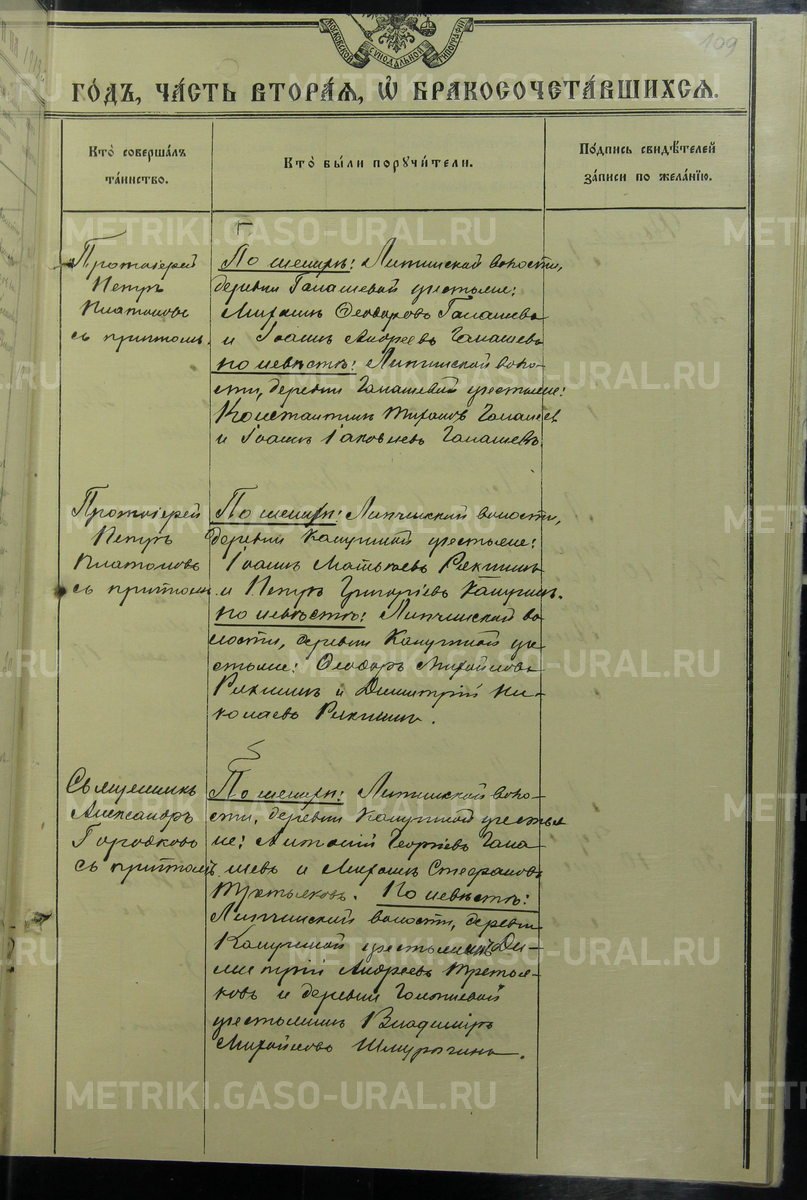 109
МОСКОВСКОЙ СѴНОДАЛЬНОЙ ТИПОГРАФІИ
ГОДЪ, ЧАСТЬ ВТОРАЯ, Ѽ БРАКОСОЧЕТАВШИХСЯ.
Кто совершалъ
таинство.
Кто были поручители.
Подпись свидѣтелей
записи по желанію.
Протоіерей
Петръ
Платоновъ
съ притомъ.
По женихѣ: Липчинской волости,
деревни Галашевой крестьяне:
Ѳеодоровъ Галашевъ
и Іоаннъ Андреевъ Галашевъ
по невѣстѣ: Липчинской воло-
сти, деревни Галашевой крестьяне:
Константинъ Тихоновъ Галашевъ
и Іоаннъ Іаковлевъ Галашевъ.
Протоіерей
Петръ
Платоновъ
съ притомъ
По женихѣ: Липчинской волости,
деревни крестьяне:
Іоаннъ Матѳеевъ
и Петръ Григоріевъ
по невѣстѣ: Липчинской во-
лости, деревни кре-
стьяне: Ѳеодоръ Михайловъ
и Димитрій Ни-
колаевъ
Священникъ
Александръ
Городковъ
съ притомъ
По женихѣ: Липчинской воло-
сти, деревни крестья
не: Антоній Георгіевъ Гала-
шевъ и Стефановъ
Третьяковъ. По невѣстѣ:
Липчинской волости, деревни
крестьянинъ Ди-
митрій Андреевъ Третья-
ковъ и деревни Галашевой
крестьянинъ Владиміръ
Михайловъ
METRIKI.GASO-URAL.RU